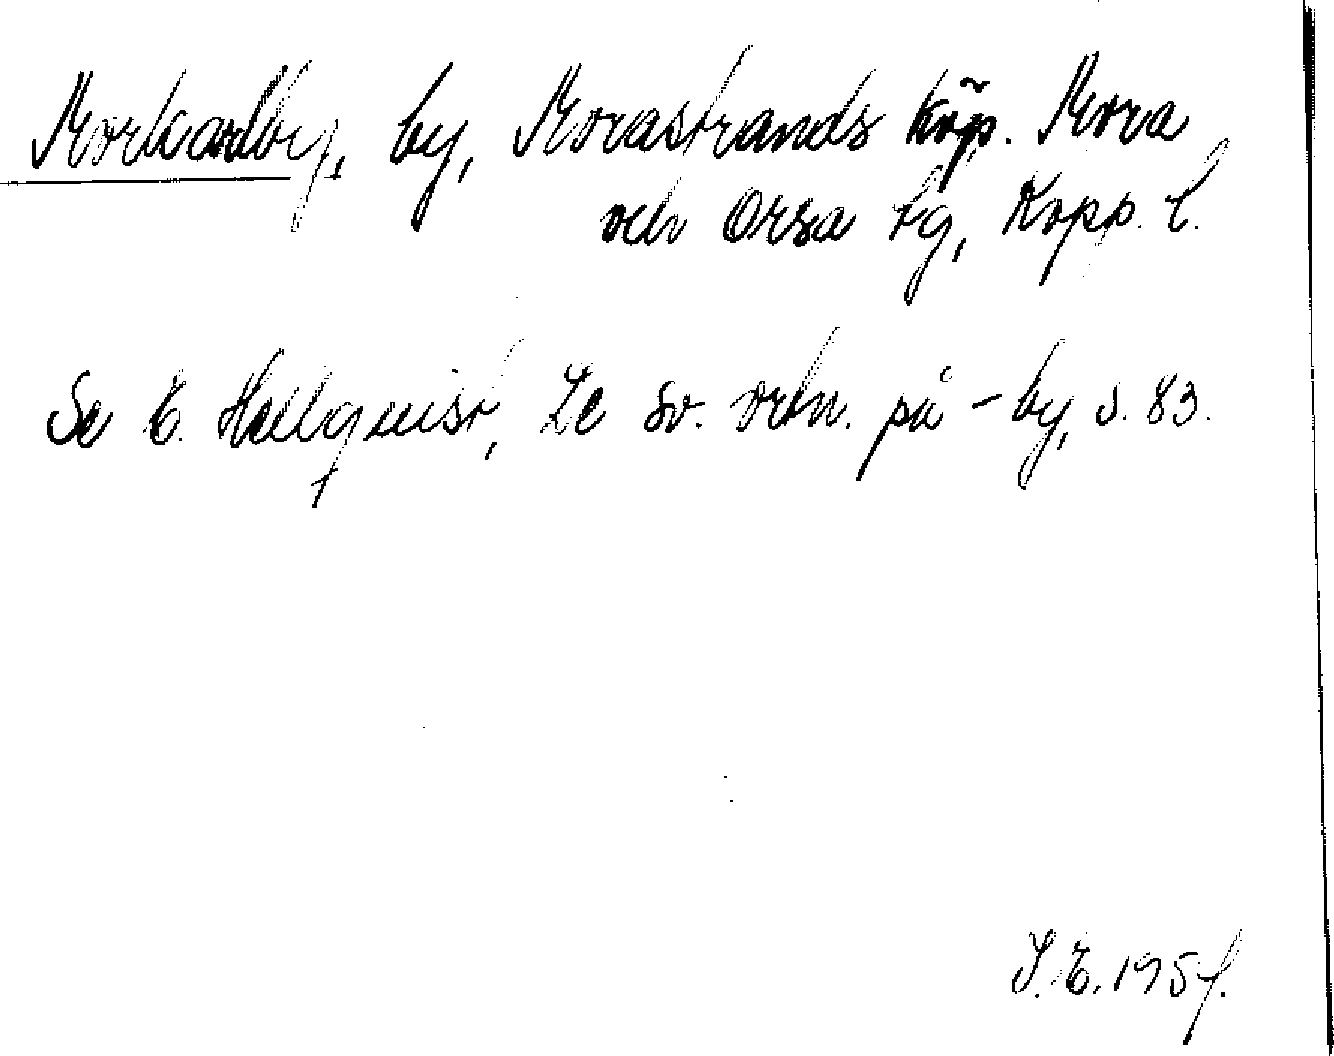 Morkarlby, by, Morastrands köp. Mora
och Orsa tg, Kopp. l.
Se E. Hellquist, De sv. ortn. på -by, s. 83.
1957.